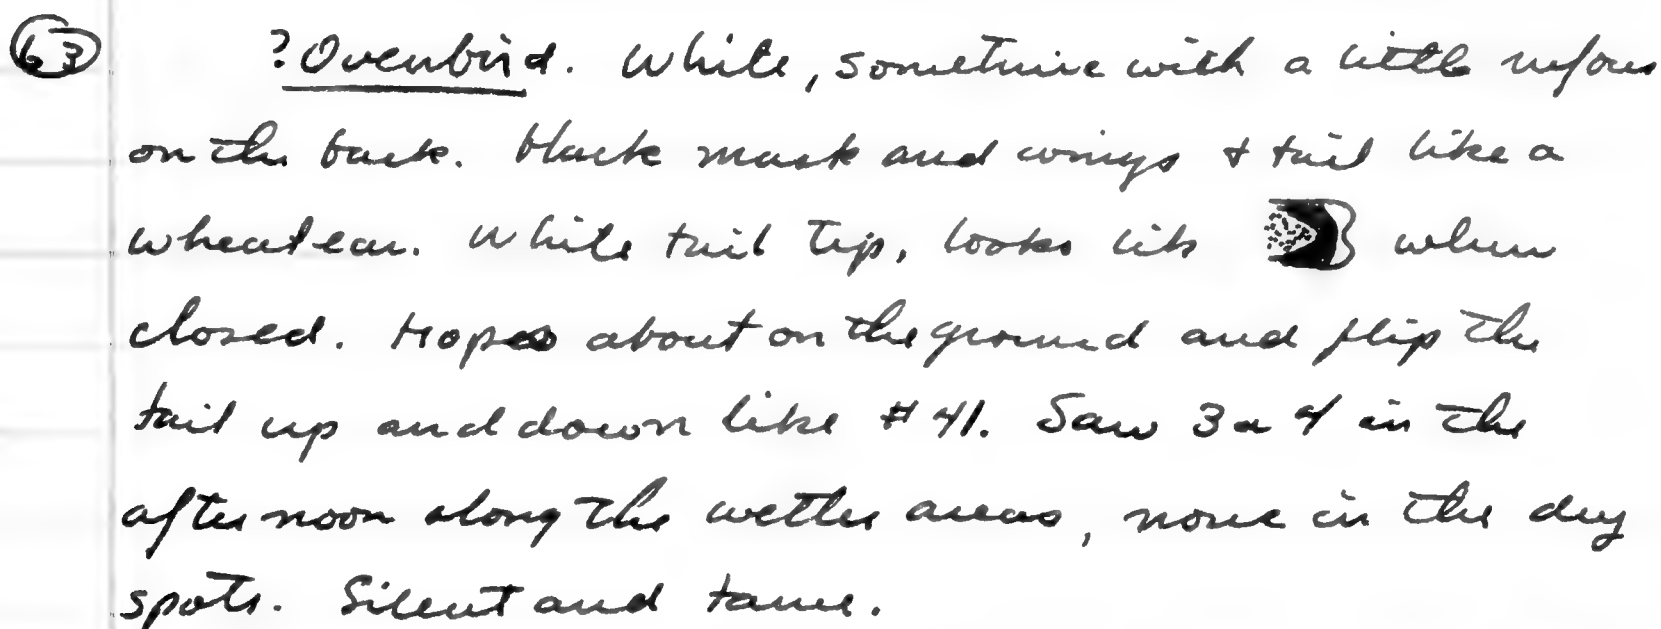 63 ? Ovenbird. White, sometime with a little rufous
on the back. black mask and wings + tail like a
wheatear. White tail tip, looks like when
closed. Hops about on the ground and flip the
tail up and down like #41. Saw 3 or 4 in the
afternoon along the wetter areas, none in the dry
spots. Silent and tame.